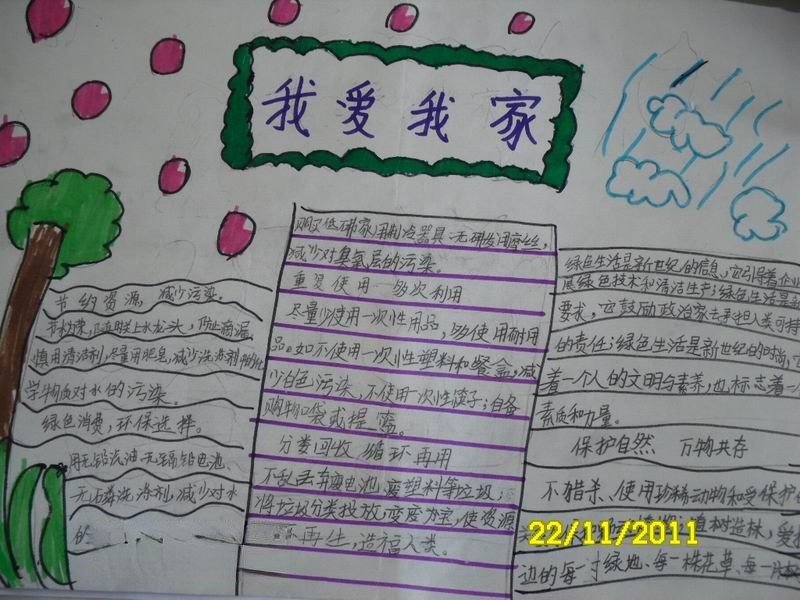 我爱我家
节约资源,减少污染。
节约水,随时关上水龙头,防止滴漏
慎用清洁剂,尽量用肥皂,减少洗涤剂中的化
学物质对水的污染。
绿色消费,环保选择。
用无铅汽油 无镉铅电池、
无磷洗涤剂,减少对水
的
购买低 家用制冷器具 无 发用摩丝,
减少对臭氧层的污染。
重复使用 多次利用
尽量少使用一次性用品,多使用耐用
品。如不使用一次性塑料和餐盒,减
少白色污染,不使用一次性筷子;自备
购物口袋或提篮。
分类回收 循环再用
不乱丢弃废电池、废塑料等垃圾;
将垃圾分类投放,变废为宝,使资源
再生,造福人类。
绿色生活是新世纪的信息,它引导着企业
展绿色技术和清洁生产;绿色生活是
要求,它鼓励政治家去承担人类可持
的责任;绿色生活是新世纪的时尚,它
着一个人的文明与素养,也标志着一
素质和力量。
保护自然 万物共存
不猎杀、使用珍稀动物和受保护
植树造林,爱护
边的每一寸绿地、每一株花草、每一片
22/11/2011